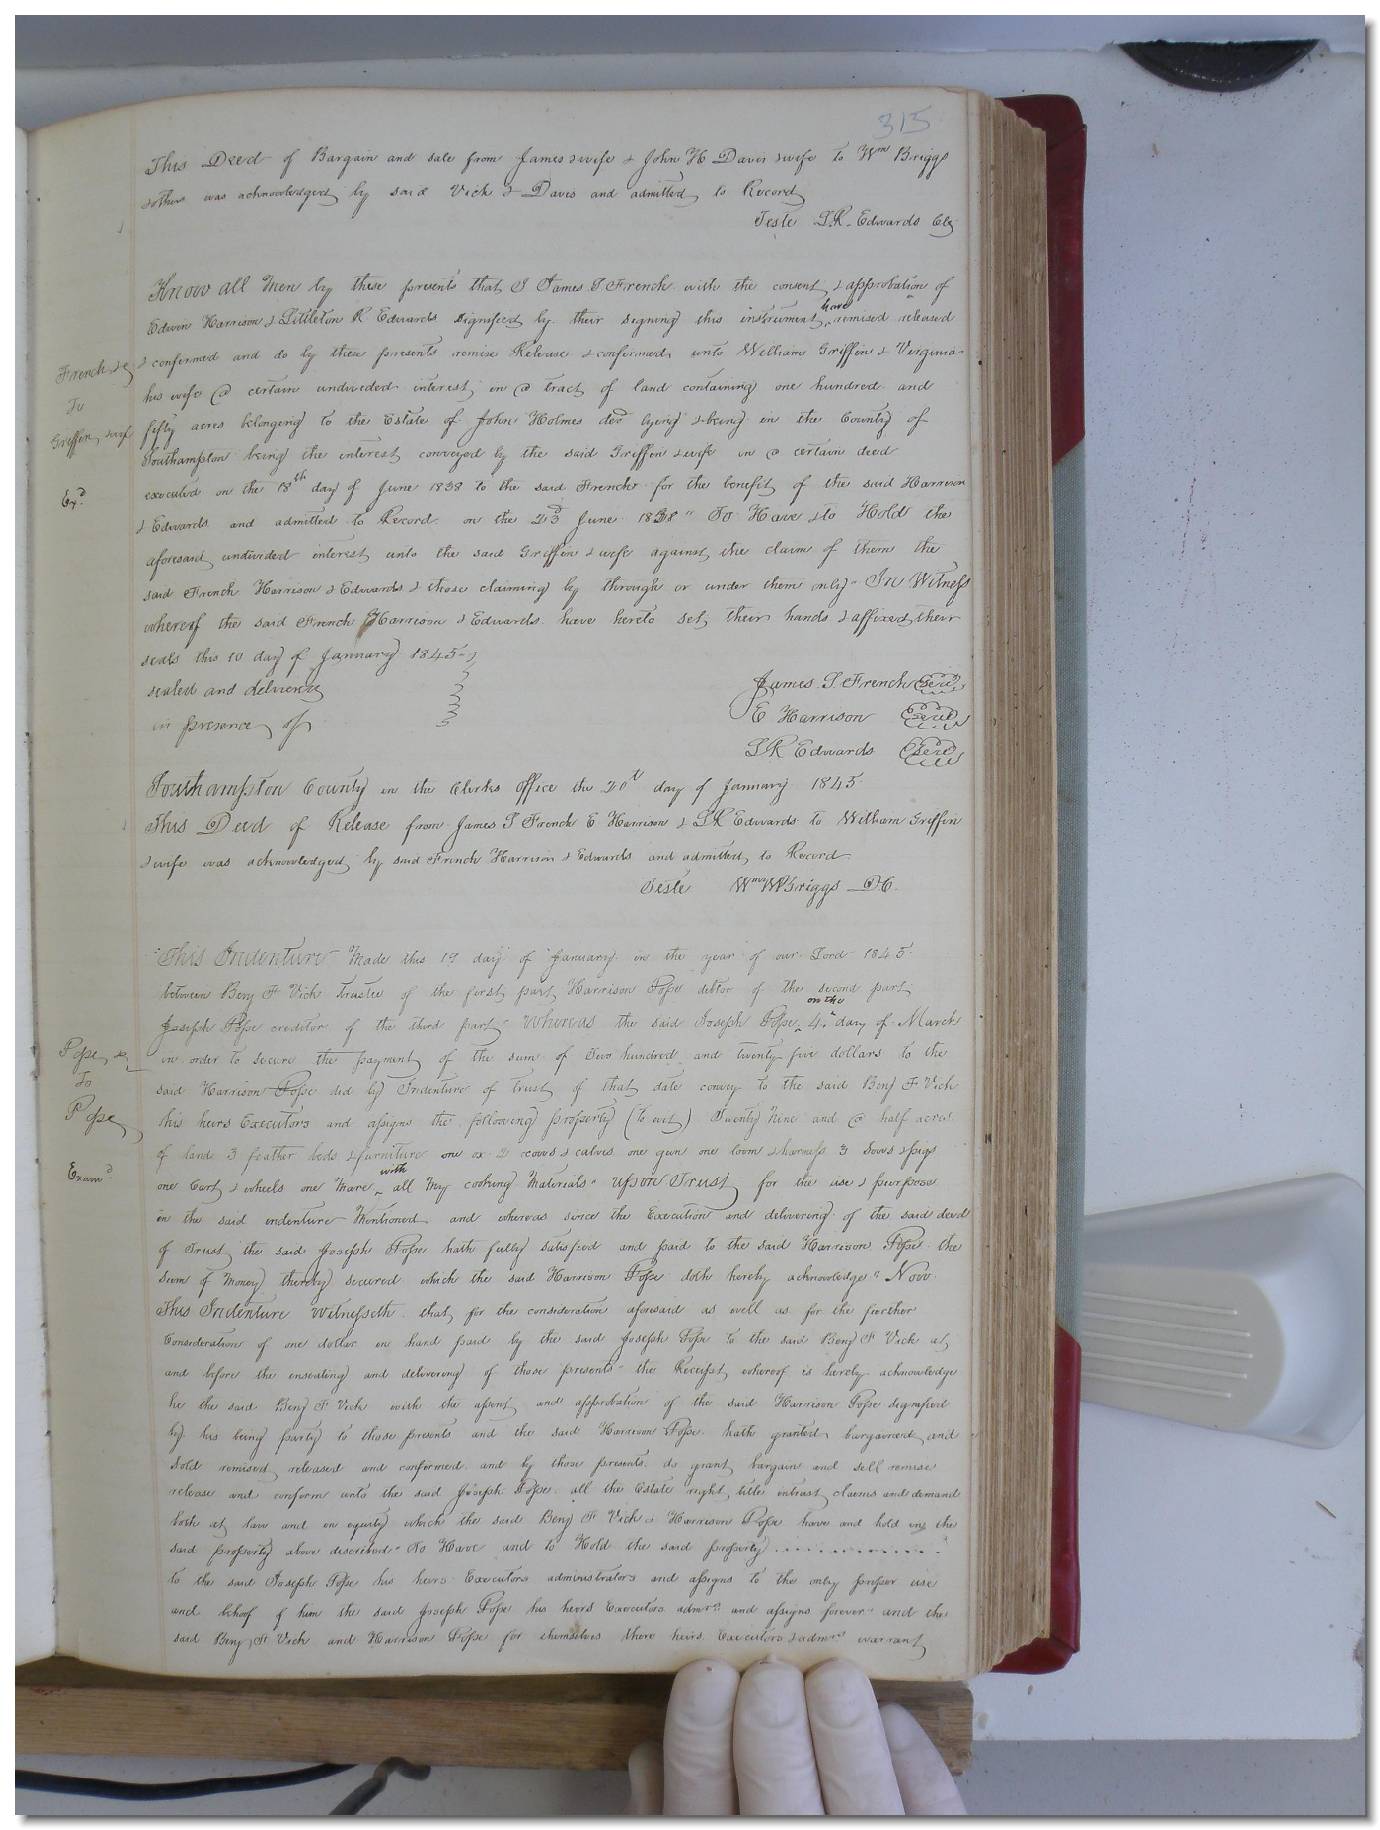 315
This Deed of Bargain and sale from James & wife & John H Davis & wife to Wm Briggs
& others was acknowledged by said Vick & Davis and admitted to Record
Teste L.R. Edwards Clk
Know all Men by these presents that I James S French with the consent & approbation of
Edwin Harrison & Littleton R Edwards signified by their signing this instrument have remised released
French &c
& confirmed and do by these presents remise Release & confirmed unto William Griffin & Virginia
To
his wife a certain undivided interest in a tract of land containing one hundred and
Griffin & wife
fifty acres belonging to the Estate of John Holmes decd lying & being in the County of
Southampton being the interest conveyed by the said Griffin & wife in a certain deed
Exd
executed on the 18th day of June 1838 to the said French for the benefit of the said Harrison
& Edwards and admitted to Record on the 23d June 1838" To Have & to Hold the
aforesaid undivided interest unto the said Griffin & wife against the claim of them the
said French Harrison & Edwards & those claiming by through or under them only" In Witness
whereof the said French Harrison & Edwards have hereto set their hands & affixed their
seals this 10 day of January 1845
sealed and delivered
in presence of
James S. French Seal
E Harrison Seal
L R Edwards Seal
Southampton County in the Clerks Office the 20th day of January 1845
This Deed of Release from James S French E Harrison & L R Edwards to William Griffin
& wife was acknowledged by said French Harrison & Edwards and admitted to Record
Teste Wm W Briggs D.C.
This Indenture Made this 19 day of January in the year of our Lord 1845
between Benj F Vick trustee of the first part Harrison Pope debtor of the second part
Joseph Pope creditor of the third part" Whereas the said Joseph Pope on the 4th day of March
Pope &c
in order to secure the payment of the sum of Two hundred and twenty five dollars to the
To
said Harrison Pope did by Indenture of trust of that date convey to the said Benj F Vick
Pope
his heirs Executors and assigns the following property (to wit) Twenty Nine and a half acres
of land 3 feather beds & furniture one ox 2 cows & calves one gun one loom & harness 3 Sows & pigs
Examd
one Cart & wheels one Mare with all My cooking Materials" upon Trust for the use & purpose
in the said indenture Mentioned and whereas since the Execution and delivering of the said deed
of Trust the said Joseph Pope hath fully satisfied and paid to the said Harrison Pope the
sum of Money thereby secured which the said Harrison Pope doth hereby acknowledge" Now
This Indenture Witnesseth that for the consideration aforesaid as well as for the further
Consideration of one dollar in hand paid by the said Joseph Pope to the said Benj F Vick at
and before the ensealing and delivering of those presents" the Receipt whereof is hereby acknowledge
he the said Benj F Vick with the assent and approbation of the said Harrison Pope signified
by his being party to those presents and the said Harrison Pope hath granted bargained and
Sold remised released and confirmed and by those presents do grant bargain and sell remise
release and confirm unto the said Joseph Pope all the Estate right title intrast claims and demand
both at law and in equity which the said Benj F Vick & Harrison Pope have and hold in the
said property above discribed" To Have and to Hold the said property
to the said Joseph Pope his heirs Executors administrators and assigns to the only proper use
and behoof of him the said Joseph Pope his heirs Executors admrs and assigns forever" and the
said Benj F. Vick and Harrison Pope for themselves there heirs Executors & admrs warrant